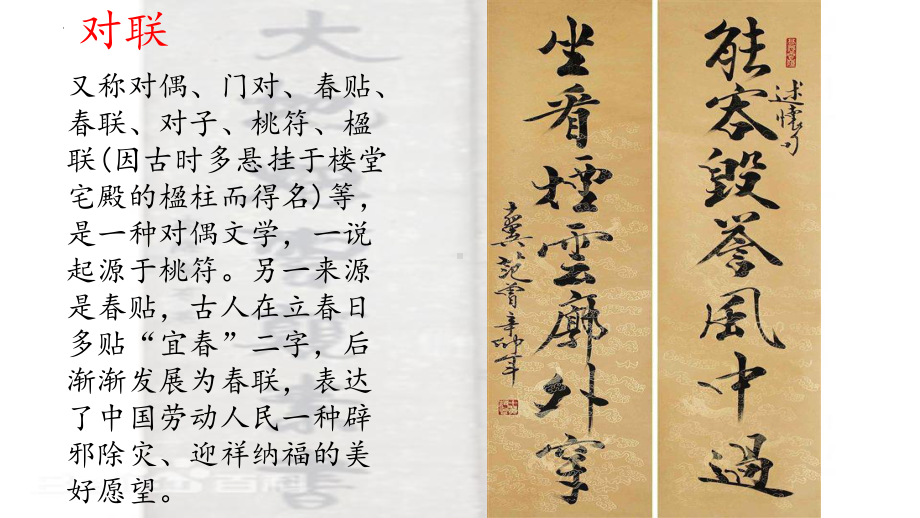 对联
又称对偶、门对、春贴、
春联、对子、桃符、楹
联(因古时多悬挂于楼堂
宅殿的楹柱而得名)等，
是一种对偶文学，一说
起源于桃符。另一来源
是春贴，古人在立春日
多贴“宜春”二字，后
渐渐发展为春联，表达
了中国劳动人民一种辟
邪除灾、迎祥纳福的美
好愿望。
能容毁誉風中過
述懷句
坐看煙雲廓外穿
十翼范曾辛卯年
百科